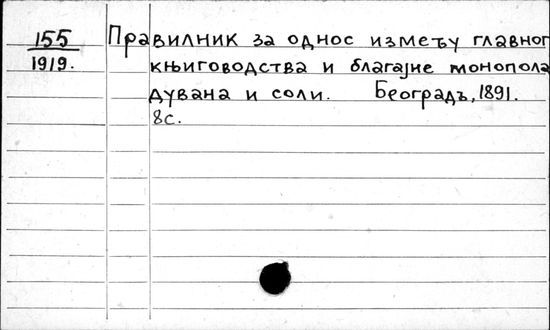 155
1919.
Правилник за однос између главног
књиговодства и благајне монопола
дувана и соли. Београдъ, 1891.
8с.